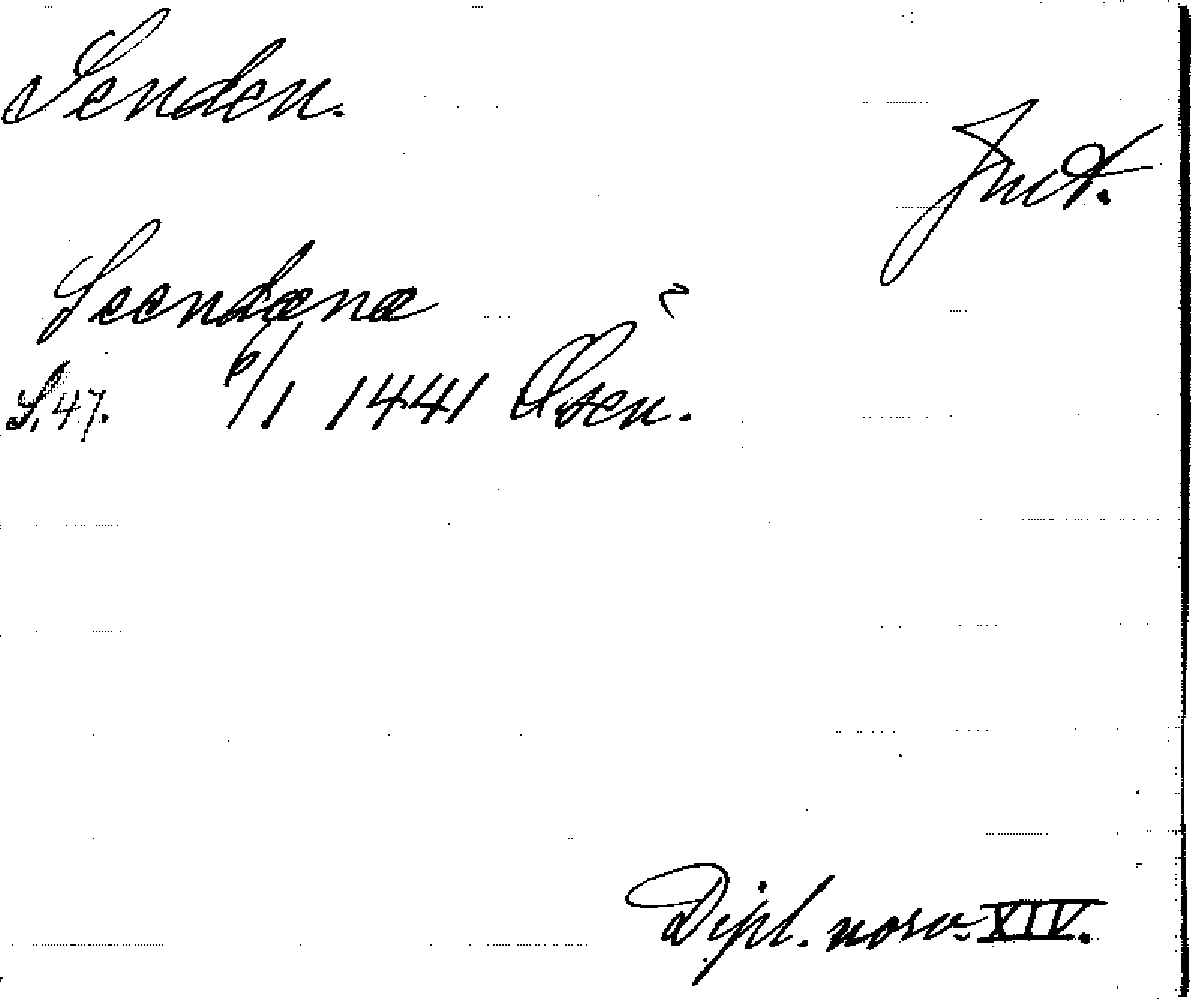 Senden.
Jnd.
Seendæna
S. 47. 6/1 1441 Øsen.
Dipl. norv. XIV.